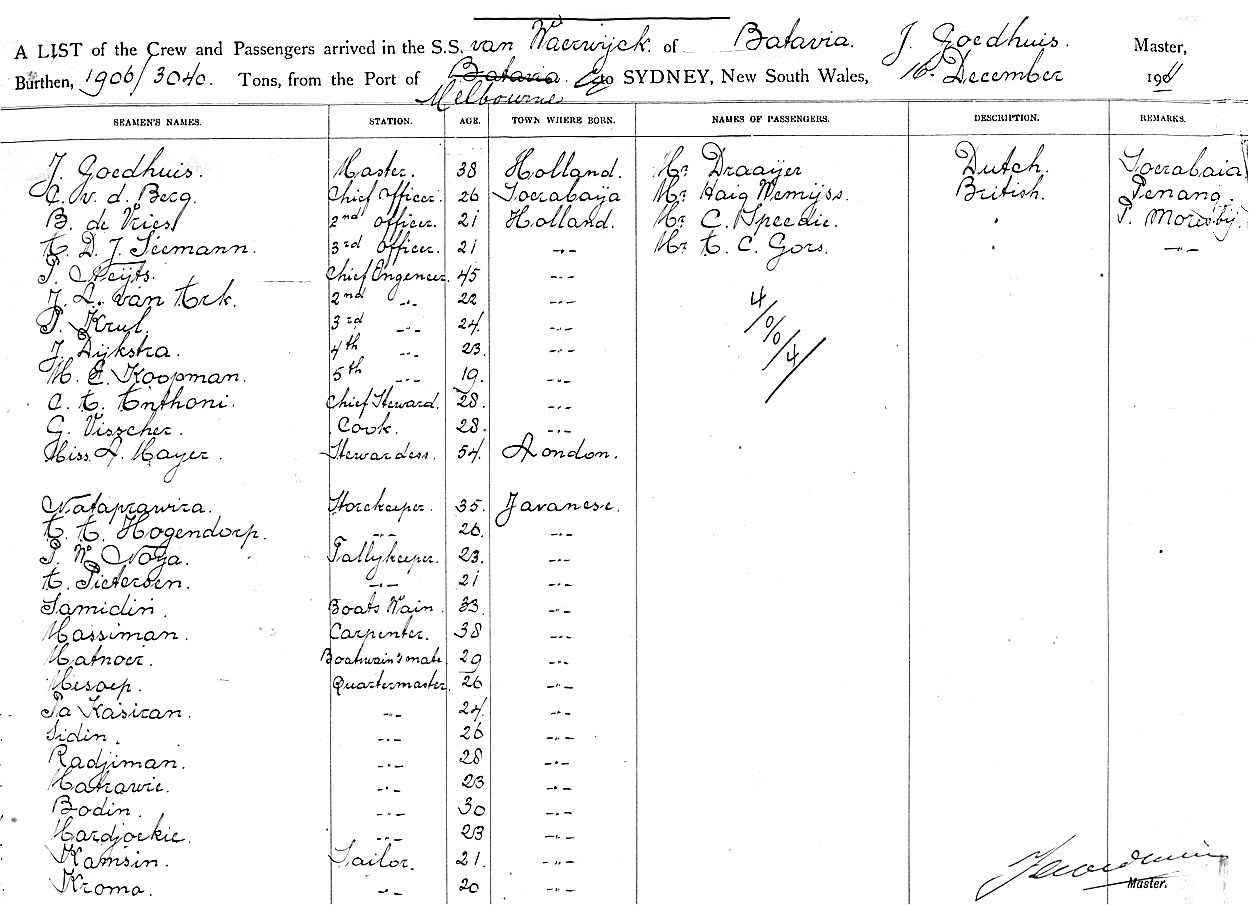 A LIST of the Crew and Passengers arrived in the S.S. van Waerwijck of Batavia. J. Goedhuis. Master,
Burthen, 1906/3040. Tons, from the Port of Batavia. to SYDNEY, New South Wales, 16 December 190
Melbourne
SEAMEN'S NAMES. STATION. AGE. TOWN WHERE BORN. NAMES OF PASSENGERS. DESCRIPTION. REMARKS.
J. Goedhuis. Master. 38 Holland. Mr Draaijer Dutch. Soerabaia
C. v. d. Berg. Chief Officer. 26 Soerabaija Mr Haig Wemijss. British. Penang.
B. de Vries 2nd Officer. 21 Holland. Mr C. Speedie. " P. Moresby.
A. D. J. Seemann. 3rd Officer. 21 -"- Mr A. C. Gors. " -"-
P. Chief Engeneer. 45 -"-
J. L. van Ark. 2nd -"- 22 -"-
P. Krul. 3rd -"- 24. -"-
J. Dijkstra. 4th -"- 23. -"-
M. E. Koopman. 5th -"- 19. -"-
4/0/0/4/
C. A. Anthoni. Chief Steward. 28. -"-
G. Visscher. Cook. 28. -"-
Miss. A. Mayer. Stewardess. 54. London.
Nataprawira. Storekeeper. 35. Javanese.
A. A. Hogendorp. -"- 26. -"-
P. W. Noya. Tallykeeper. 23. -"-
A. Pietersen. -"- 21 -"-
Samidin. Boats Wain. 33. -"-
Massiman. Carpenter. 38 -"-
Matnoer. Boatswain's mate 29 -"-
Mesoep. Quartermaster. 26 -"-
Pa Kasiran. -"- 24. -"-
Sidin. -"- 26 -"-
Radjiman. -"- 28 -"-
Matrawie. -"- 23 -"-
Bodin. -"- 30 -"-
Hardjoekie. -"- 23 -"-
Kamsin. Sailor. 21. -"-
Kroma. -"- 20 -"-
Master.